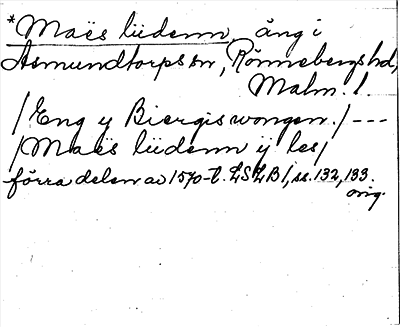 *Maës lüdenn, äng i
Asmundtorps sn, Rönnebergs hd,
Malm. l.
/Eng y Biergis wongen./ ---
/Maës lüdenn ÿ les/
förra delen av 1570-t. LSLB 1, ss. 132, 133.
orig.